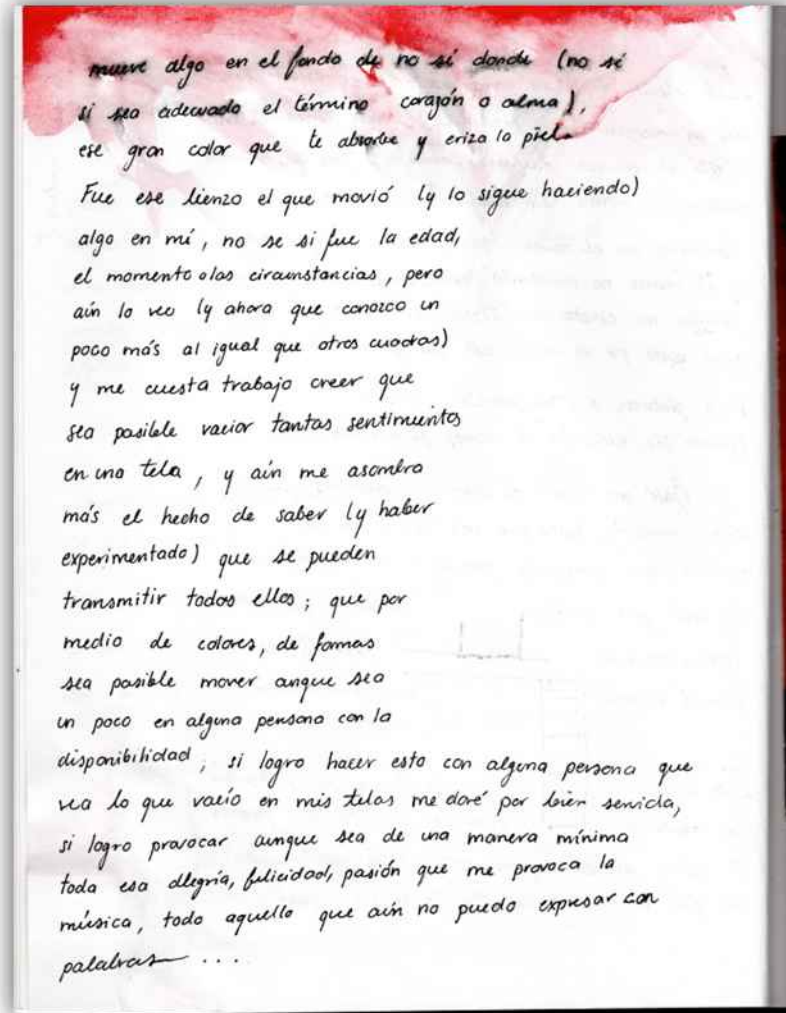 mueve algo en el fondo de no sé donde (no sé
si sea adecuado el término corazón o alma),
ese gran color que te absorbe y eriza la piel.
Fue ese lienzo el que movió (y lo sigue haciendo)
algo en mí, no se si fue la edad,
el momento o las circunstancias, pero
aún lo veo (y ahora que conozco un
poco más al igual que otros cuadros)
y me cuesta trabajo creer que
sea posible vaciar tantos sentimientos
en una tela, y aún me asombra
más el hecho de saber (y haber
experimentado) que se pueden
transmitir todos ellos; que por
medio de colores, de formas
sea posible mover anque sea
un poco en alguna persona con la
disponibilidad; si logro hacer esto con alguna persona que
vea lo que vacío en mis telas me daré por bien servida,
si logro provocar aunque sea de una manera mínima
toda esa alegría, felicidad, pasión que me provoca la
música, todo aquello que aún no puedo expresar con
palabras ....